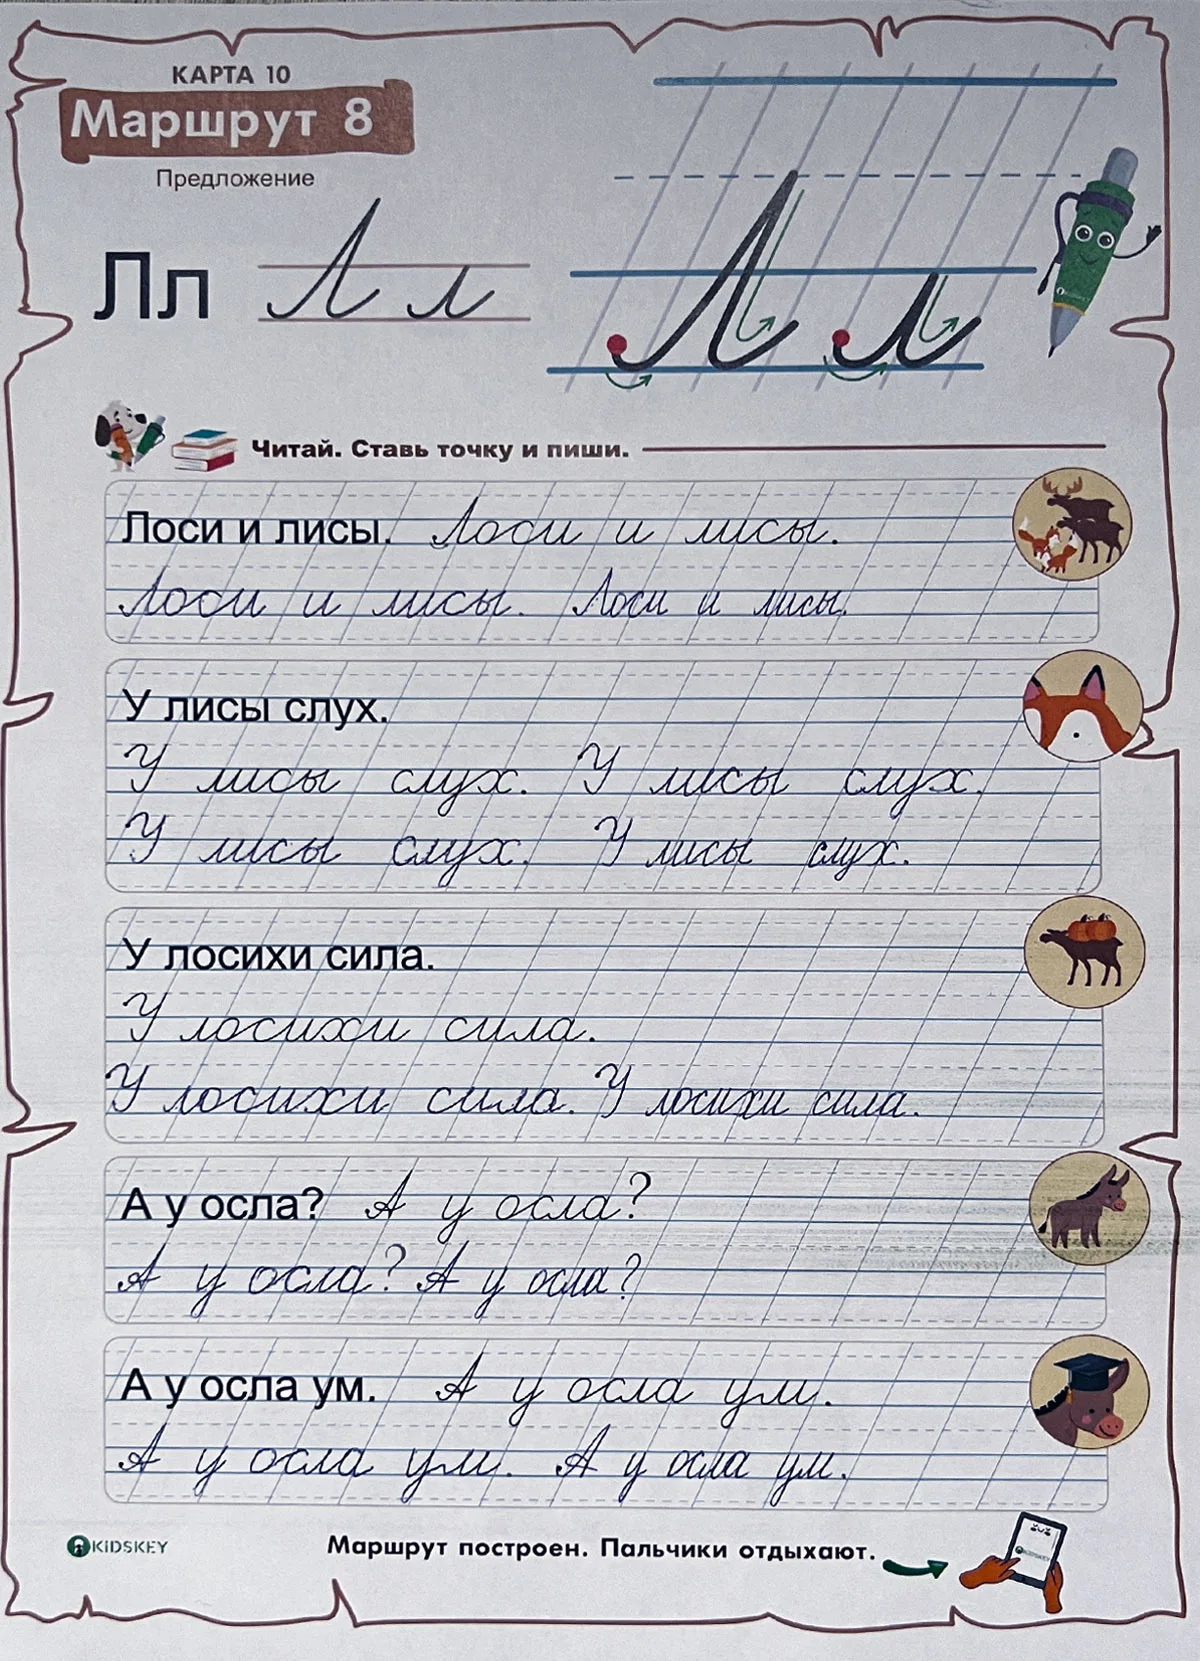 КАРТА 10
Маршрут 8
Предложение
Лл Л л Л л
Читай. Ставь точку и пиши.
Лоси и лисы. Лоси и лисы.
Лоси и лисы. Лоси и лисы.
У лисы слух.
У лисы слух. У лисы слух.
У лисы слух. У лисы слух.
У лосихи сила.
У лосихи сила.
У лосихи сила. У лосихи сила.
А у осла? А у осла?
А у осла? А у осла?
А у осла ум. А у осла ум.
А у осла ум. А у осла ум.
KIDSKEY Маршрут построен. Пальчики отдыхают.